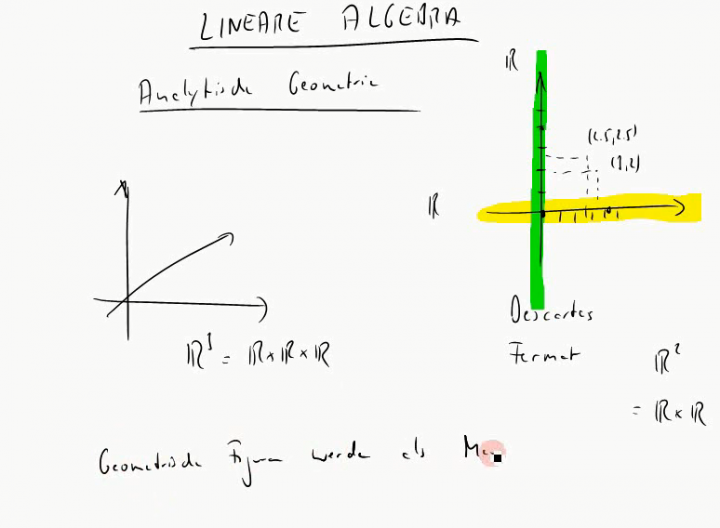 LINEARE ALGEBRA
Analytische Geometrie
ℝ
(2.5,2.5)
ℝ
Descartes
Fermat
ℝ³ = ℝ×ℝ×ℝ
ℝ²
= ℝ×ℝ
Geometrische Figuren werden als